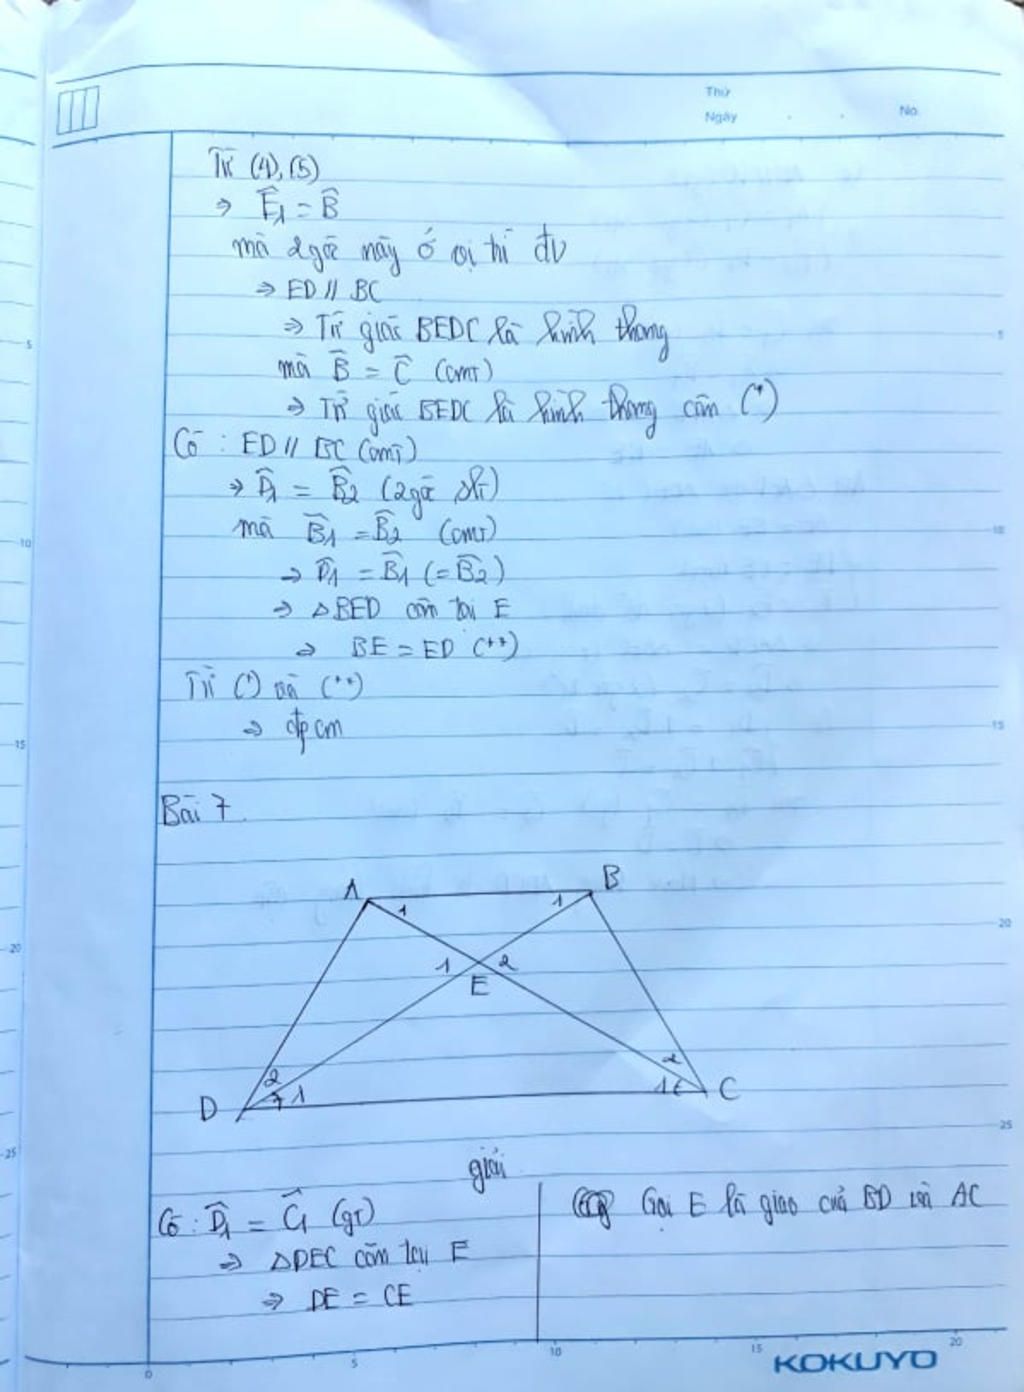 Thứ
Ngày . . No.
Từ (4), (5)
⇒ Ê1 = B̂
mà 2 góc này ở vị trí đv
⇒ ED // BC
⇒ Tứ giác BEDC là hình thang
mà B̂ = Ĉ (cmt)
⇒ Tứ giác BEDC là hình thang cân (*)
Có : ED // BC (cmt)
⇒ D̂1 = B̂2 (2 góc slt)
mà B̂1 = B̂2 (cmt)
⇒ D̂1 = B̂1 (= B̂2)
⇒ △BED cân tại E
⇒ BE = ED (**)
Từ (*) và (**)
⇒ đpcm
Bài 7
A B
1 1
1 2
E
2 2
D 1 1 C
giải
Có : D̂1 = Ĉ1 (gt)
⇒ △DEC cân tại E
⇒ DE = CE
Gọi E là giao của BD và AC
5
10
15
20
25
5
10
15
20
25
0 5 10 15 20
KOKUYO